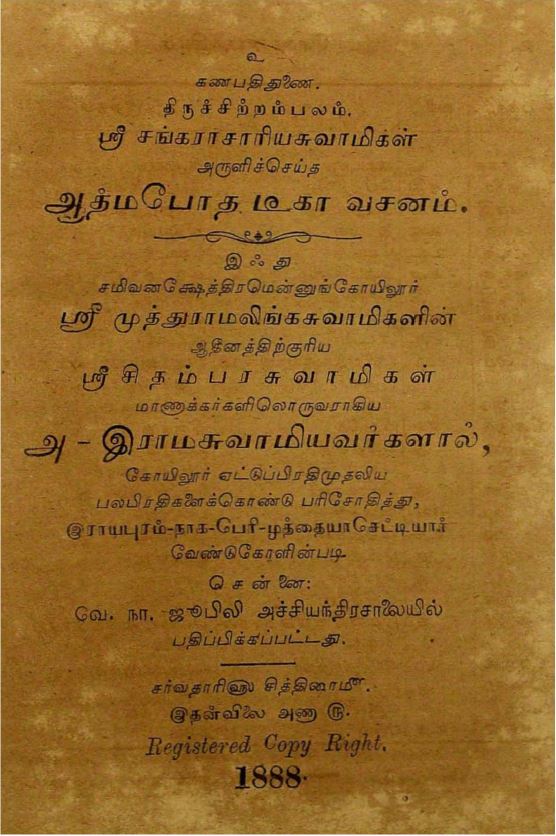 உ
கணபதிதுணை.
திருச்சிற்றம்பலம்.
ஸ்ரீ சங்கராசாரியசுவாமிகள்
அருளிச்செய்த
ஆத்மபோத டீகா வசனம்.
இஃது
சமிவனக்ஷேத்திரமென்னுங்கோயிலூர்
ஸ்ரீ முத்துராமலிங்கசுவாமிகளின்
ஆதீனத்திற்குரிய
ஸ்ரீ சிதம்பரசுவாமிகள்
மாணாக்கர்களிலொருவராகிய
அ - இராமசுவாமியவர்களால்,
கோயிலூர் ஏட்டுப்பிரதிமுதலிய
பலபிரதிகளைக்கொண்டு பரிசோதித்து,
இராயபுரம்-நாக-பெரி-முத்தையாசெட்டியார்
வேண்டுகோளின்படி
சென்னை:
வே. நா. ஜூபிலி அச்சியந்திரசாலையில்
பதிப்பிக்கப்பட்டது.
சர்வதாரி௵ சித்திரை௴.
இதன்விலை அணா ரு.
Registered Copy Right.
1888.